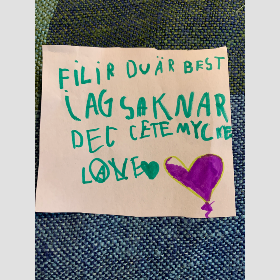 FILIR DU ÄR BEST
iAG SAKNAR
DEC CETE MYCKE
LOVE